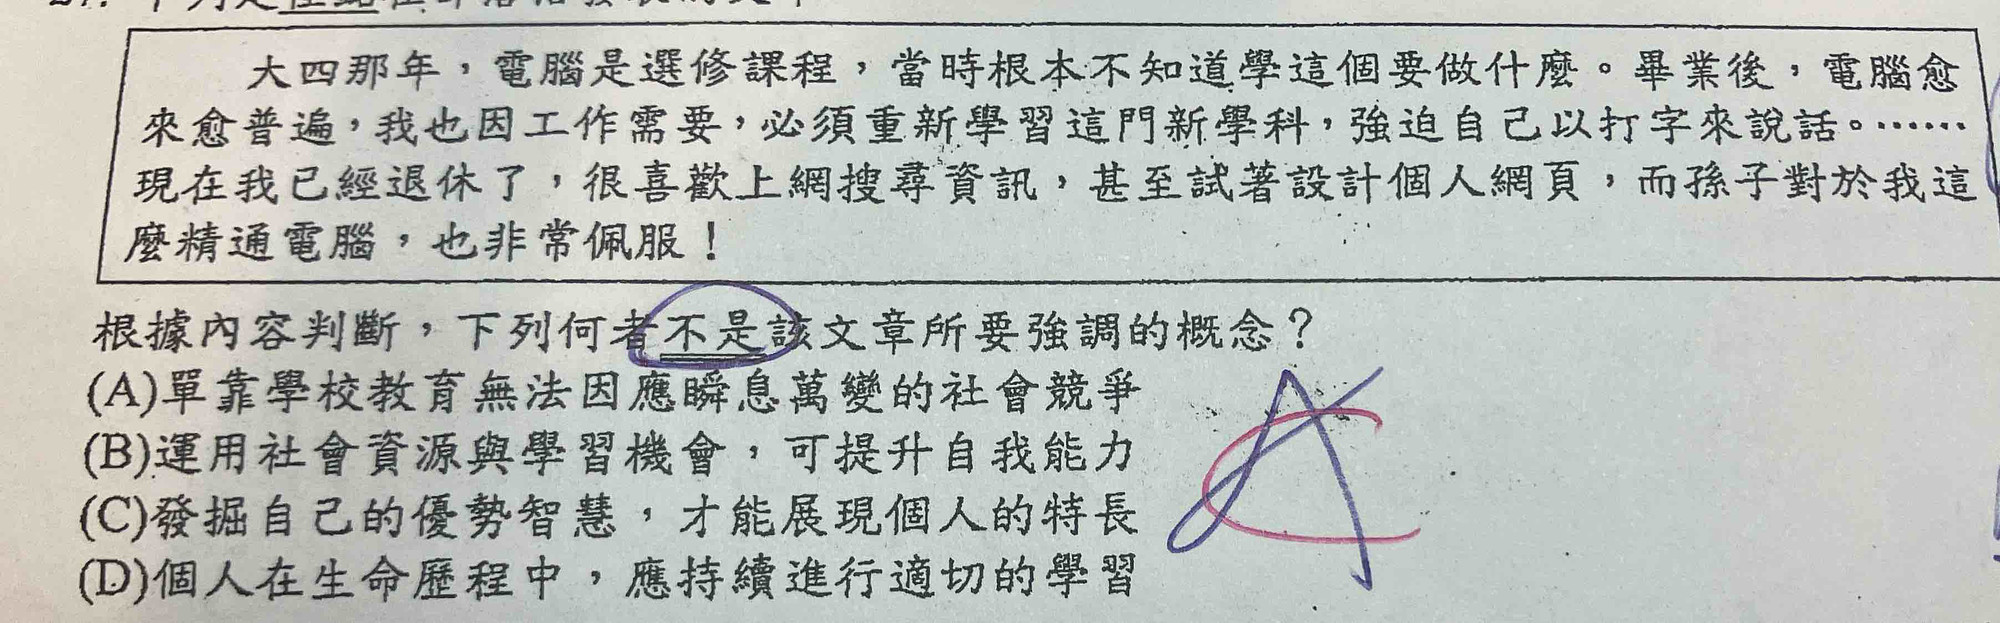 大四那年，電腦是選修課程，當時根本不知道學這個要做什麼。畢業後，電腦愈
來愈普遍，我也因工作需要，必須重新學習這門新學科，強迫自己以打字來說話。……
現在我已經退休了，很喜歡上網搜尋資訊，甚至試著設計個人網頁，而孫子對於我這
麼精通電腦，也非常佩服！
根據內容判斷，下列何者不是該文章所要強調的概念？
(A)單靠學校教育無法因應瞬息萬變的社會競爭
(B)運用社會資源與學習機會，可提升自我能力
(C)發掘自己的優勢智慧，才能展現個人的特長
(D)個人在生命歷程中，應持續進行適切的學習
A
C